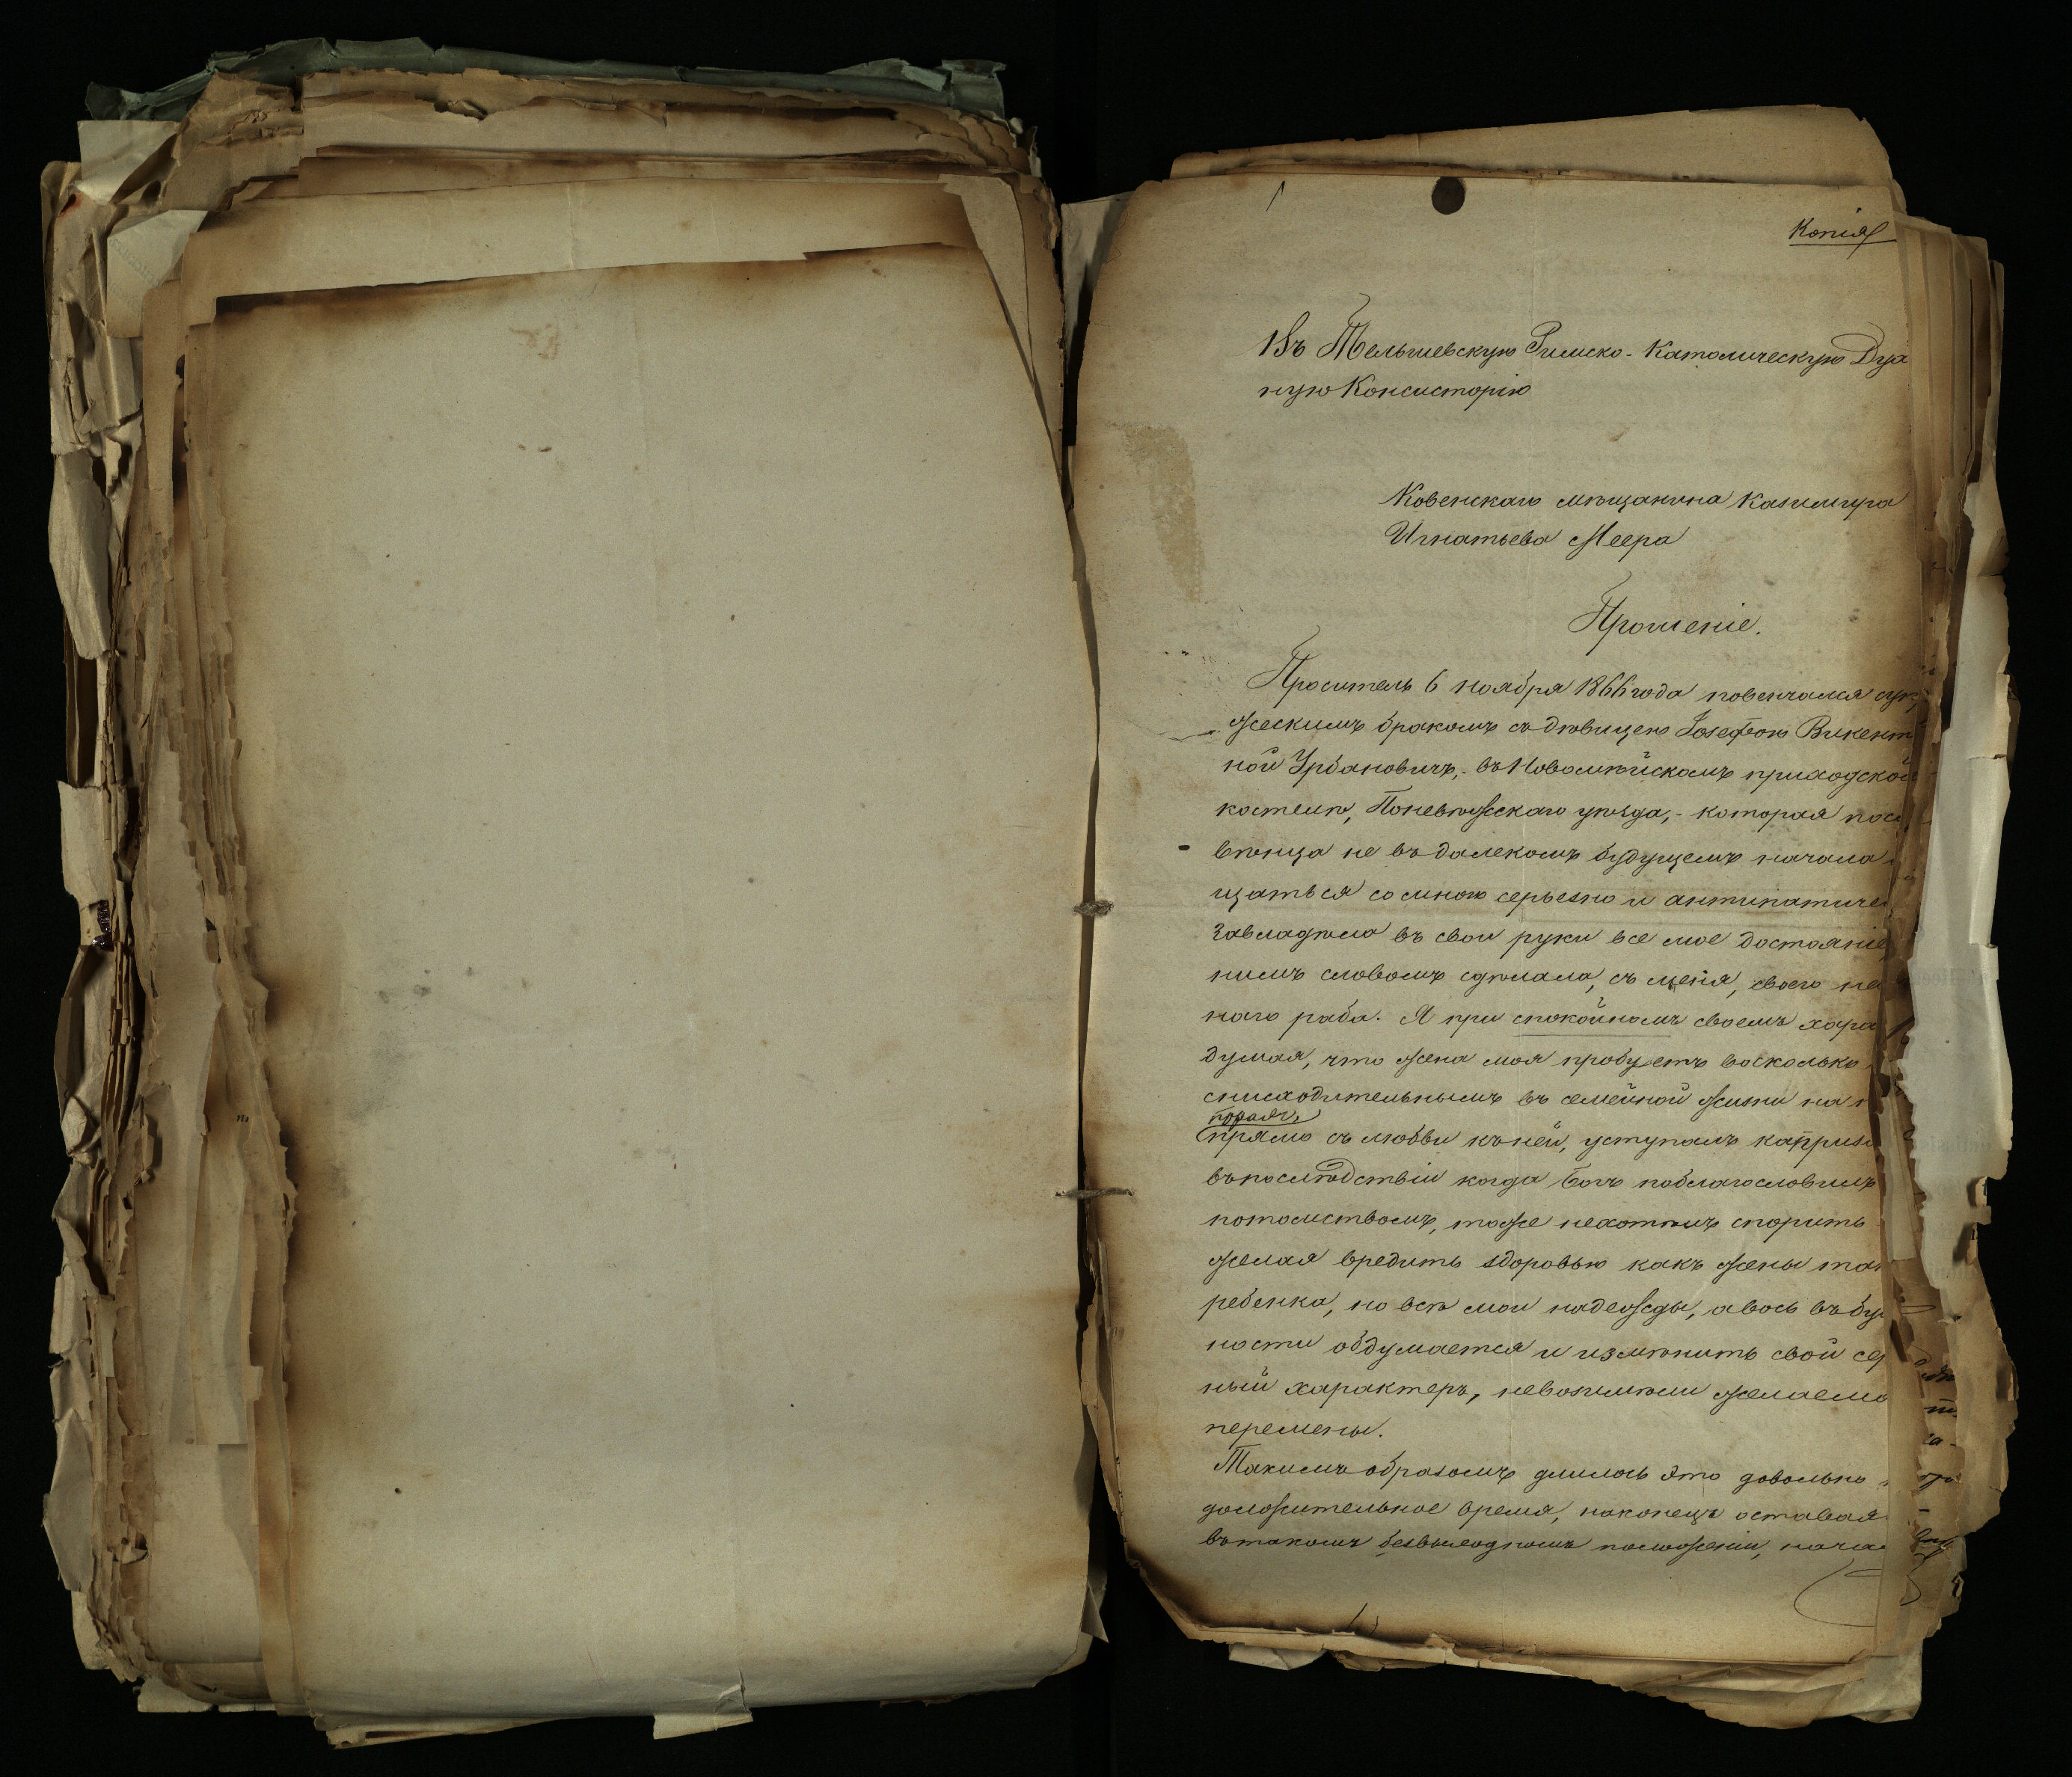 Копія
Въ Тельшевскую Римско-Католическую Дух
ную Консисторію
Ковенскаго мѣщанина Казимира
Игнатьева Меера
Прошеніе.
Проситель 6 ноября 1866 года повенчался суп
жескимъ бракомъ съ дѣвицею Іозефою Викент
ной Урбановичъ,- въ Новомѣйскомъ приходской
костелѣ, Поневѣжскаго уѣзда,- которая посл
вѣнца не въ далекомъ будущемъ начала
щаться со мною серьезно и антипатичес
завладѣла въ свои руки все мое достояніе,
нимъ словомъ сдѣлала, съ меня, своего не
наго раба. Я при спокойномъ своемъ хара
думая, что жена моя пробуетъ восколько
снисходительнымъ въ семейной жизни на
прямо съ любви къ ней, уступалъ каприз
въпослѣдствіи когда Богъ поблагословилъ
потомствомъ, тоже нехотѣлъ спорить
желая вредить здоровью какъ жены так
ребенка, но всѣ мои надежды, авось въ бу
ности обдумается и измѣнитъ свой сер
ный характеръ, невозимѣли желаемо
перемены.
Такимъ образомъ длилось это довольно
должительное время, наконецъ оставая
въ такомъ безвыходномъ положеніи, нача